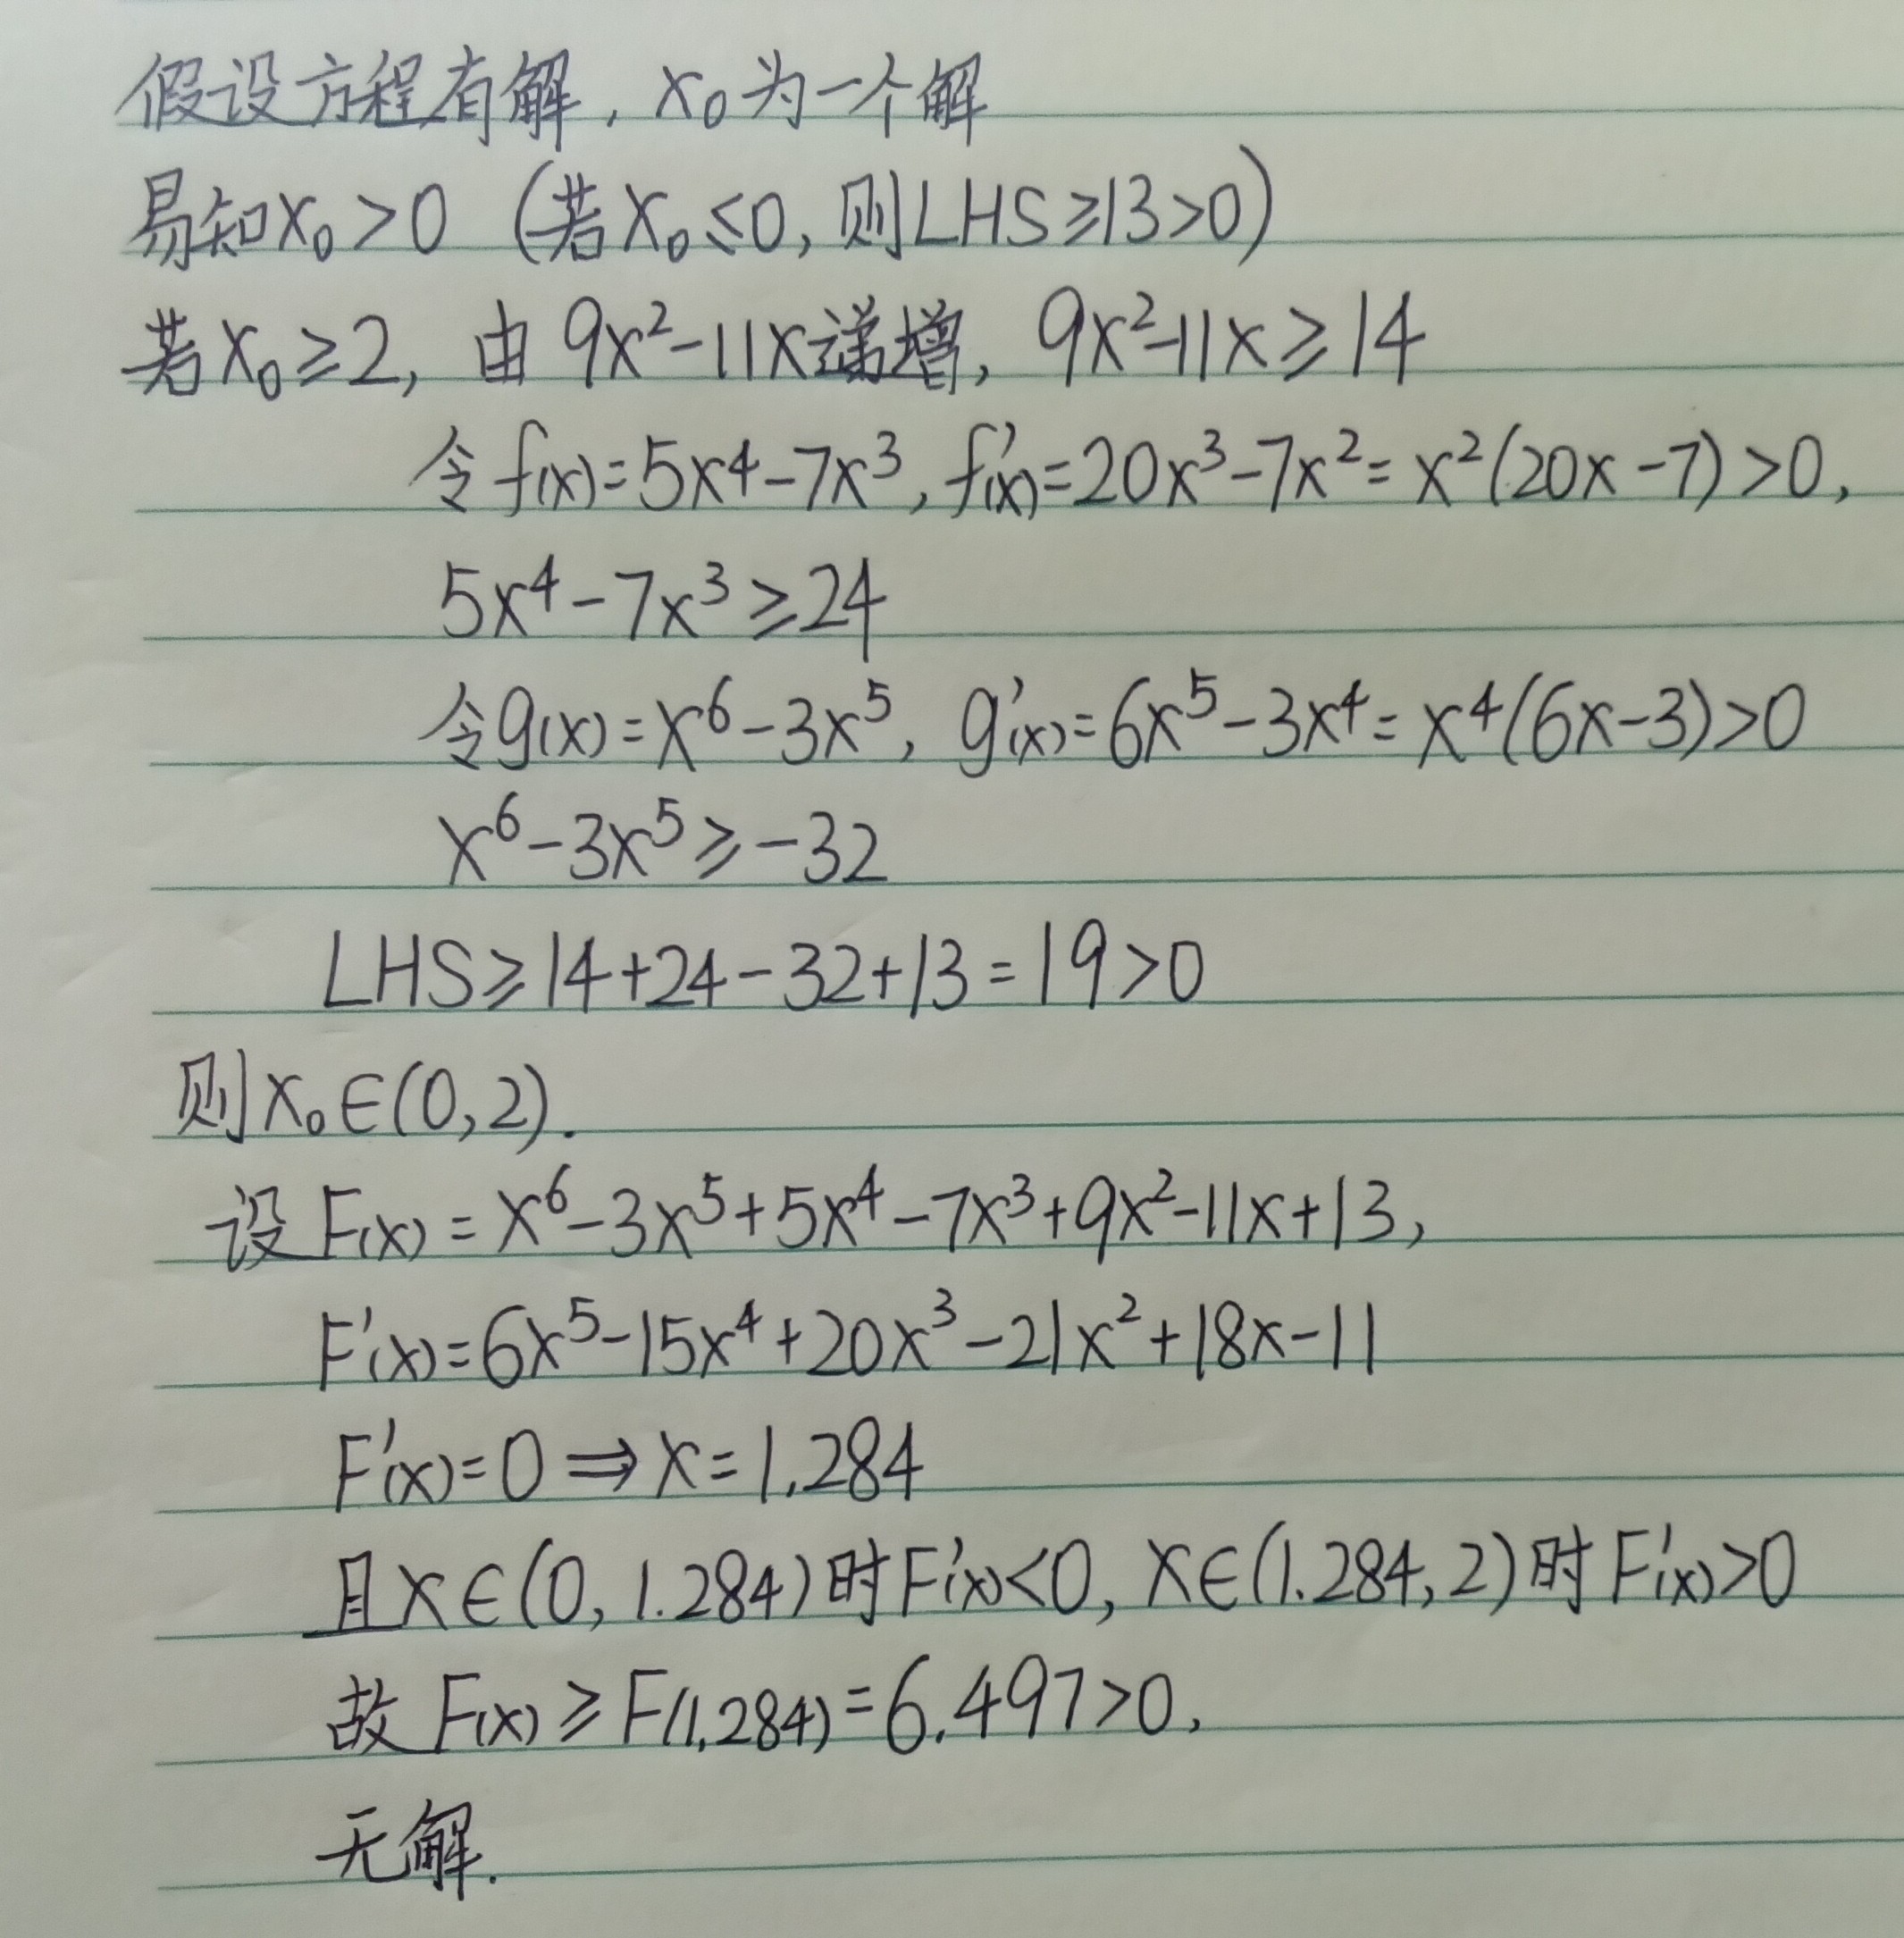 假设方程有解, x₀为一个解
易知x₀>0 (若x₀≤0, 则LHS≥13>0)
若x₀≥2, 由9x²-11x递增, 9x²-11x≥14
令f(x)=5x⁴-7x³, f'(x)=20x³-7x²=x²(20x-7)>0,
5x⁴-7x³≥24
令g(x)=x⁶-3x⁵, g'(x)=6x⁵-3x⁴=x⁴(6x-3)>0
x⁶-3x⁵≥-32
LHS≥14+24-32+13=19>0
则x₀∈(0,2).
设F(x)=x⁶-3x⁵+5x⁴-7x³+9x²-11x+13,
F'(x)=6x⁵-15x⁴+20x³-21x²+18x-11
F'(x)=0⇒x=1.284
且x∈(0,1.284)时F'(x)<0, x∈(1.284,2)时F'(x)>0
故F(x)≥F(1.284)=6.497>0,
无解.